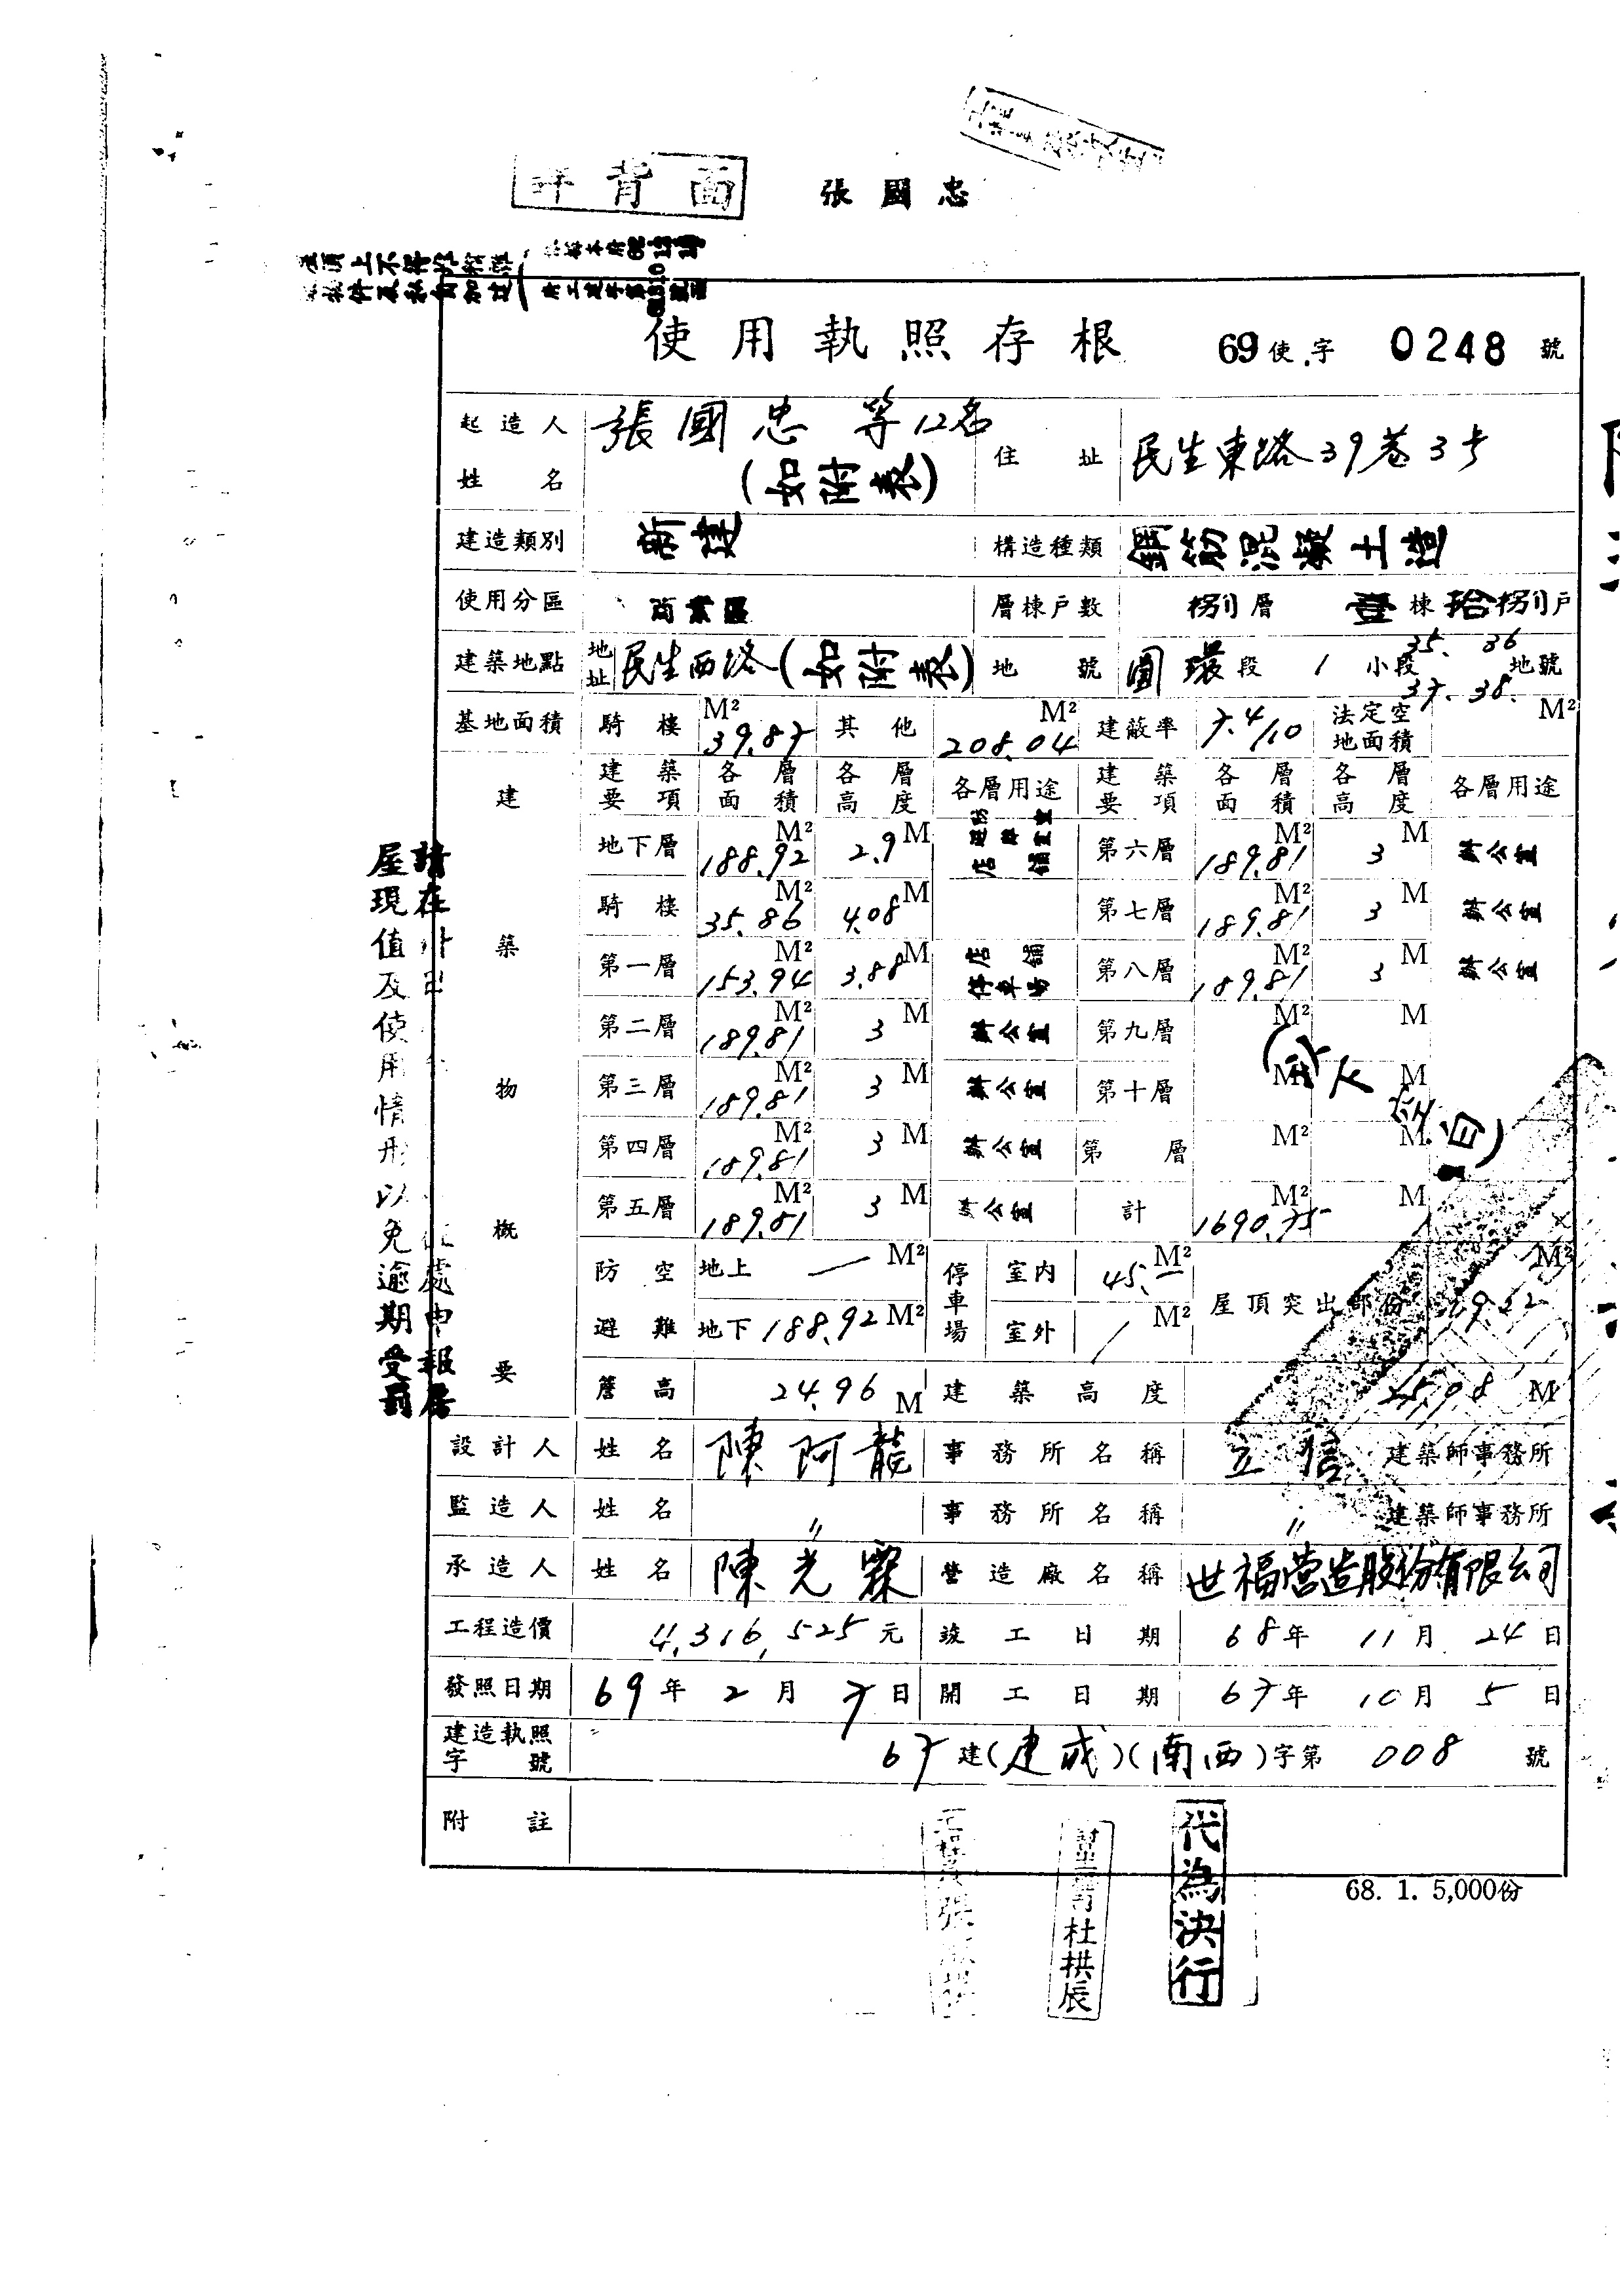 詳背面
張國忠
使用執照存根 69使字 0248 號
起造人姓名 張國忠 等12名 (如附表) 住址 民生東路39巷3号
建造類別 新建 構造種類 鋼筋混凝土造
使用分區 商業區 層棟戶數 捌層 壹棟 拾捌戶
建築地點 地址 民生西路(如附表) 地號 圓環段 1 小段 35. 36 37. 38. 地號
基地面積 騎樓 39.87 M² 其他 208.04 M² 建蔽率 7.4/10 法定空地面積 M²
建築物概要
建築要項 各層面積 各層高度 各層用途 建築要項 各層面積 各層高度 各層用途
地下層 188.92 M² 2.9 M 店舖 第六層 189.81 M² 3 M 辦公室
騎樓 35.86 M² 4.08 M 第七層 189.81 M² 3 M 辦公室
第一層 153.94 M² 3.88 M 店舖 停車場 第八層 189.81 M² 3 M 辦公室
第二層 189.81 M² 3 M 辦公室 第九層 M² M
第三層 189.81 M² 3 M 辦公室 第十層 M² M
(以下空白)
第四層 189.81 M² 3 M 辦公室 第 層 M² M
第五層 189.81 M² 3 M 辦公室 計 1690.75 M² M
防空避難 地上 — M² 停車場 室內 45.— M² 屋頂突出部份 M²
地下 188.92 M² 室外 / M²
簷高 24.96 M 建築高度 M
設計人 姓名 陳阿龍 事務所名稱 立信 建築師事務所
監造人 姓名 〃 事務所名稱 〃 建築師事務所
承造人 姓名 陳光霖 營造廠名稱 世福營造股份有限公司
工程造價 4,316,525元 竣工日期 68年 11月 24日
發照日期 69年 2月 7日 開工日期 67年 10月 5日
建造執照字號 67建(建成)(南西)字第 008 號
附註
屋現值及使用情形以免逾期受罰
代為決行
杜拱辰
68. 1. 5,000份